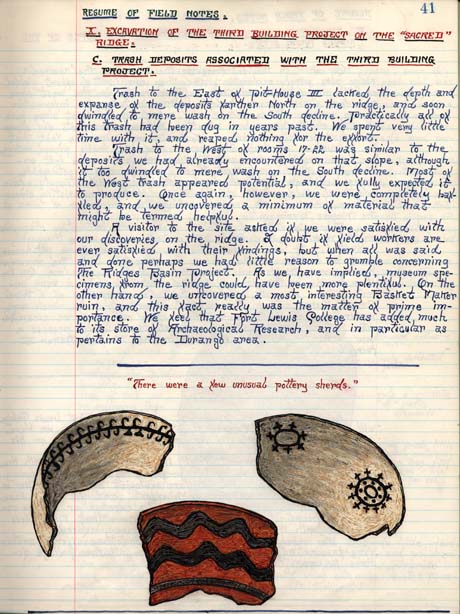 41
RESUME OF FIELD NOTES.
X. EXCAVATION OF THE THIRD BUILDING PROJECT ON THE "SACRED"
RIDGE.
C. TRASH DEPOSITS ASSOCIATED WITH THE THIRD BUILDING
PROJECT.
Trash to the East of Pit-House III lacked the depth and
expanse of the deposits farther North on the ridge, and soon
dwindled to mere wash on the South decline. Practically all of
this trash had been dug in years past. We spent very little
time with it, and reaped nothing for the effort.
Trash to the West of rooms 17-22 was similar to the
deposits we had already encountered on that slope, although
it too dwindled to mere wash on the South decline. Most of
the West trash appeared potential, and we fully expected it
to produce. Once again, however, we were completely baf-
fled, and we uncovered a minimum of material that
might be termed helpful.
A visitor to the site asked if we were satisfied with
our discoveries on the ridge. I doubt if field workers are
ever satisfied with their findings, but when all was said
and done perhaps we had little reason to grumble concerning
the Ridges Basin Project. As we have implied, museum spe-
cimens from the ridge could have been more plentiful. On the
other hand, we uncovered a most interesting Basket Maker
ruin, and this fact really was the matter of prime im-
portance. We feel that Fort Lewis College has added much
to its store of Archaeological Research, and in particular as
pertains to the Durango area.
"There were a few unusual pottery sherds."